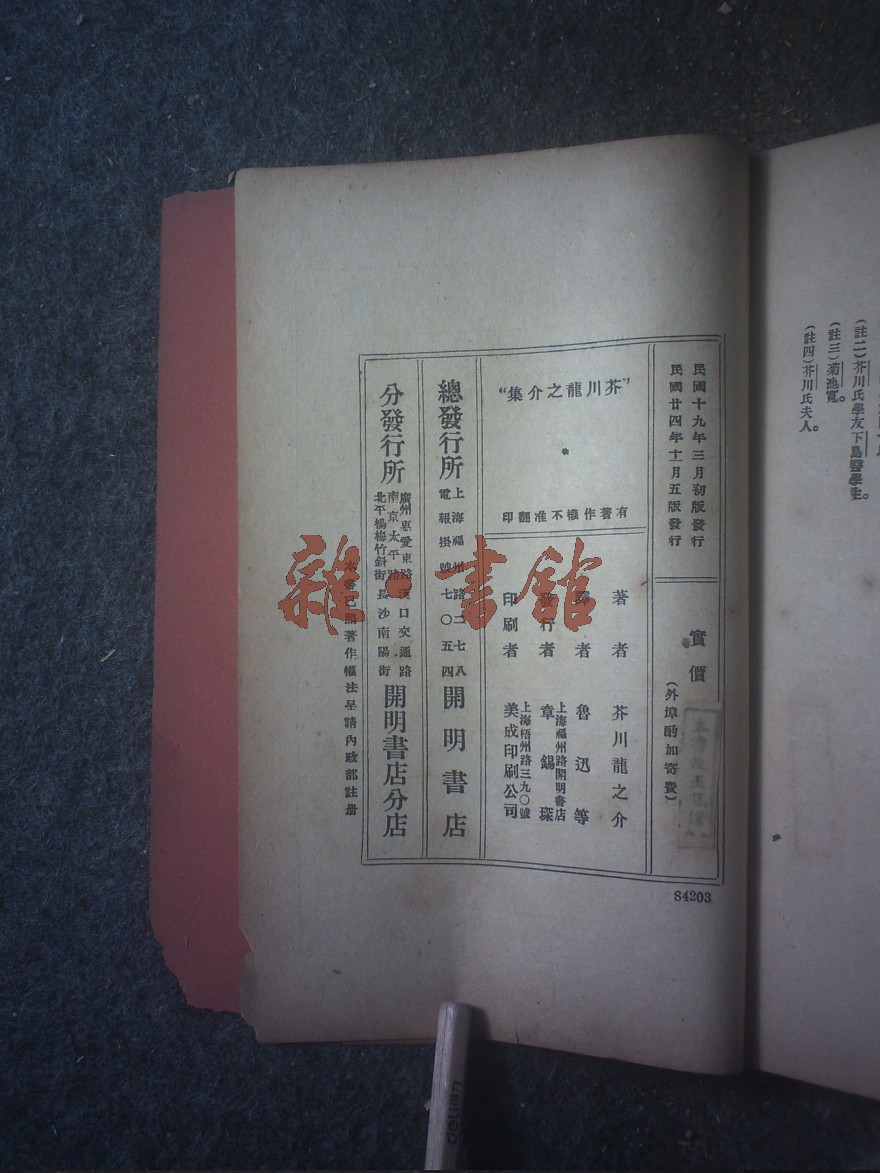 民國十九年三月初版發行
民國廿四年十一月五版發行
實價
(外埠酌加寄費)
“芥川龍之介集”
有著作權不准翻印
著者 芥川龍之介
譯者 魯迅等
發行者 章錫琛
上海福州路開明書店
印刷者 美成印刷公司
上海梧州路三九〇號
總發行所 開明書店
上海福州路二七八
電報掛號七〇五四
分發行所 開明書店分店
廣州惠愛東路 漢口交通路
南京太平路
北平楊梅竹斜街 長沙南陽街
本書已照著作權法呈請內政部註冊
84203
(註二)芥川氏學友下島醫學生。
(註三)菊池寬。
(註四)芥川氏夫人。
雜·書館
deli